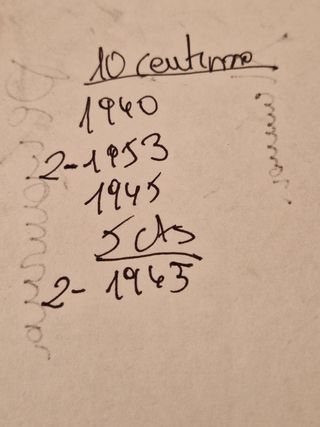 10 centimo
1940
2-1953
1945
5 cts
2- 1945